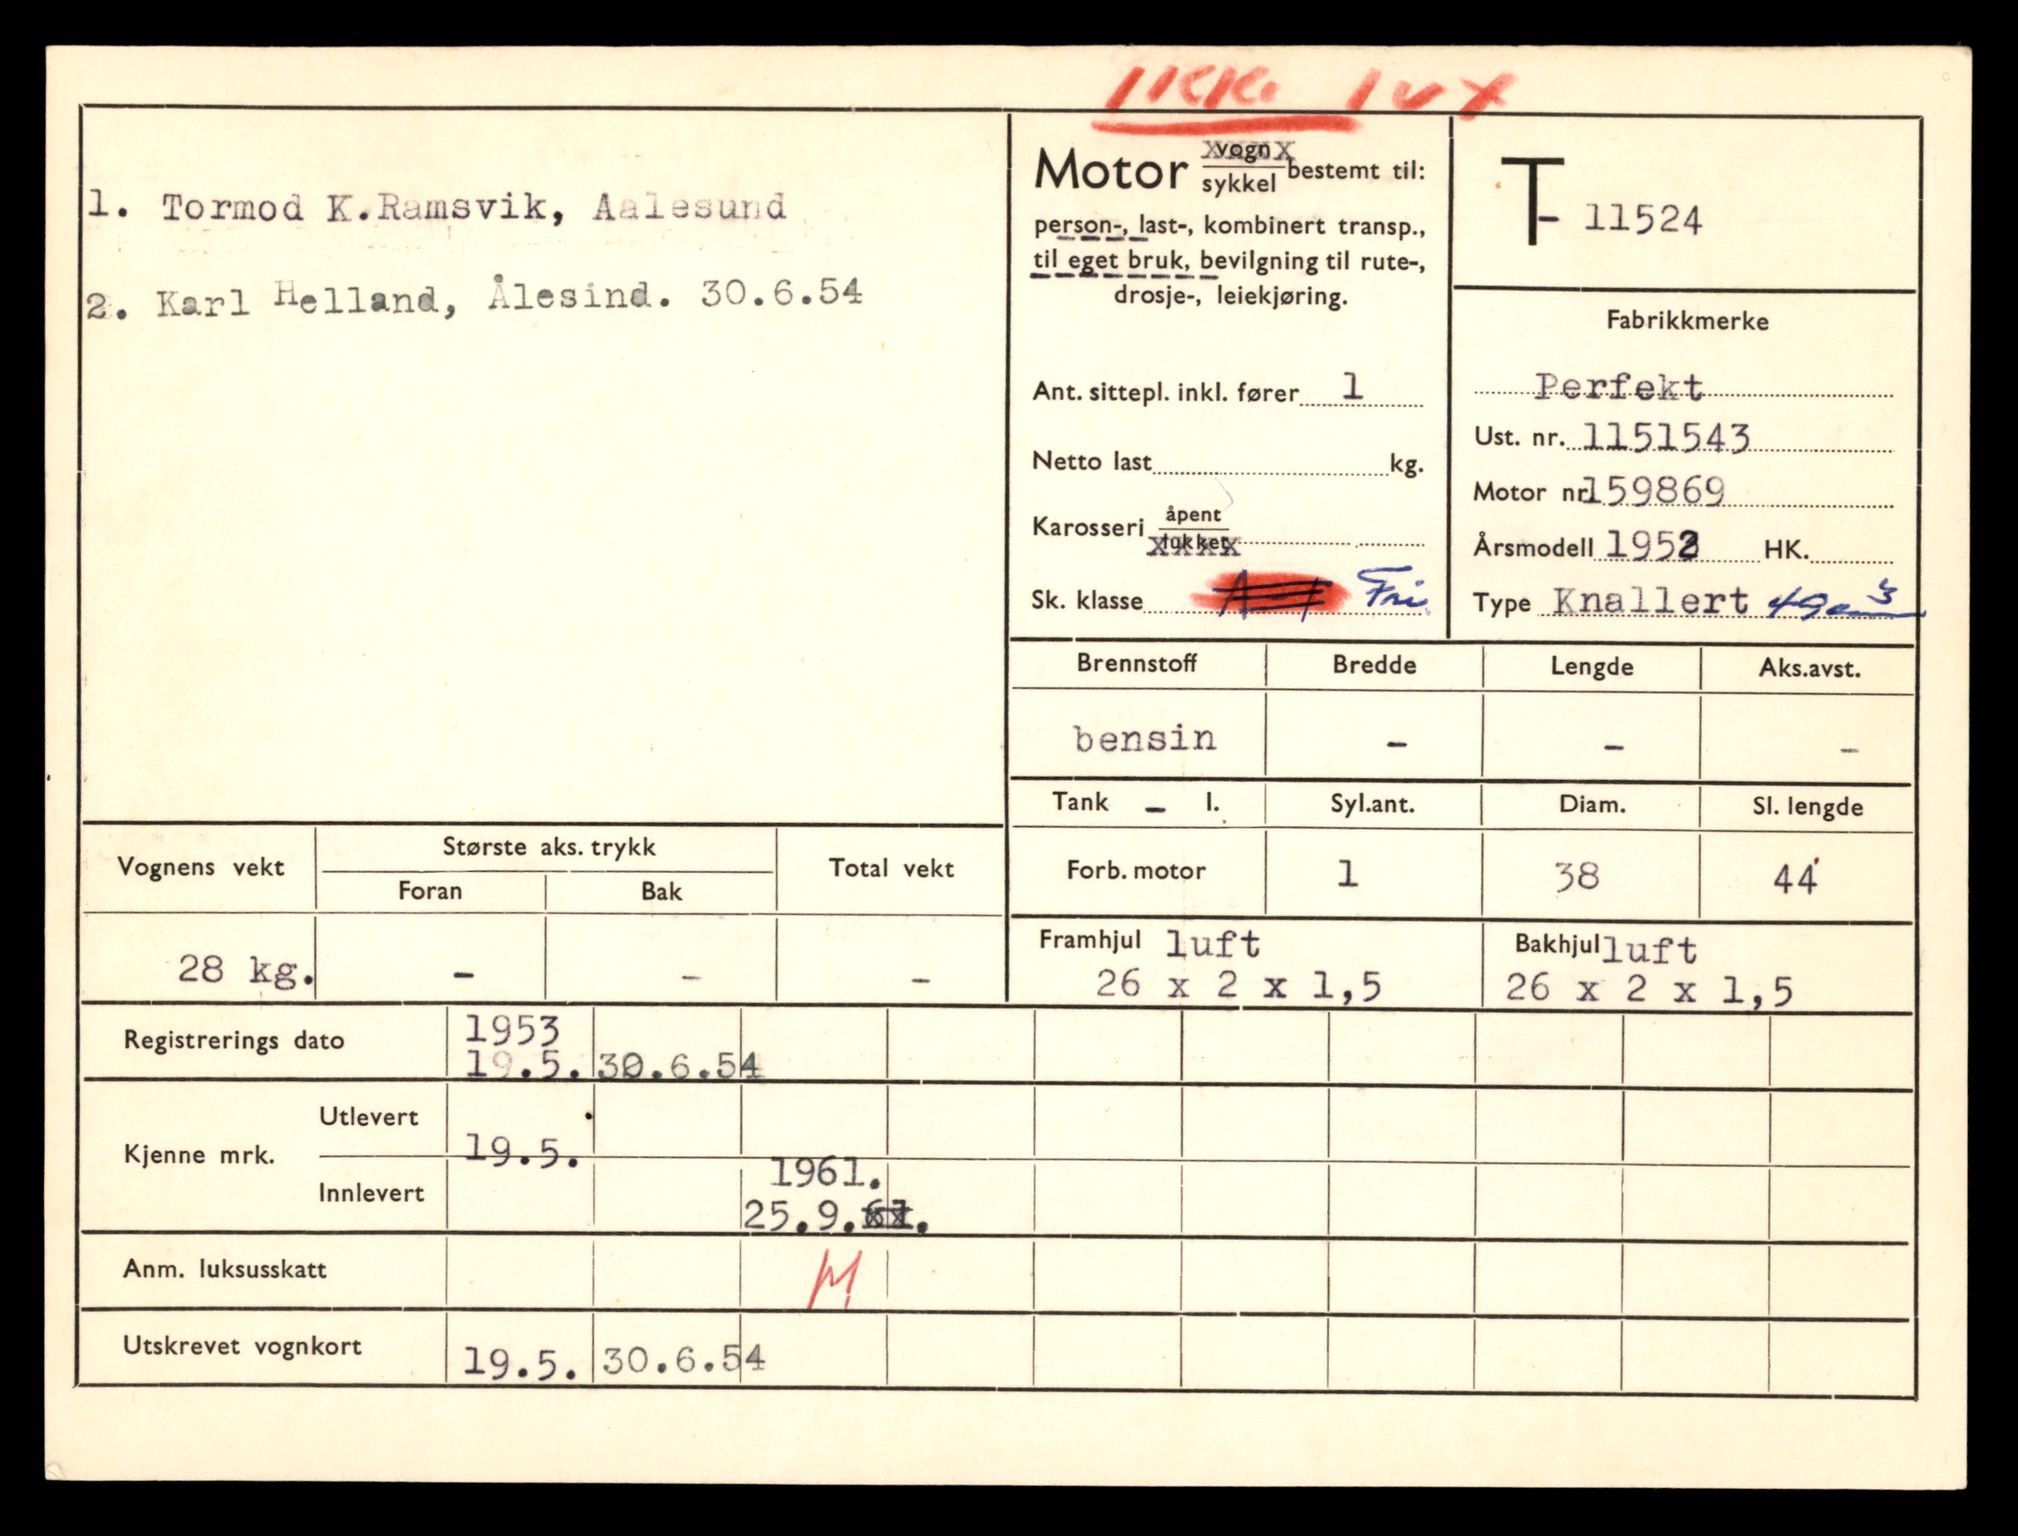 Ikke lux
1. Tormod K.Ramsvik, Aalesund
2. Karl Helland, Ålesind. 30.6.54
Motor vogn sykkel bestemt til:
person-, last-, kombinert transp.,
til eget bruk, bevilgning til rute-,
drosje-, leiekjøring.
Ant. sittepl. inkl. fører 1
Netto last kg.
Karosseri åpent lukket
Sk. klasse Fri
T- 11524
Fabrikkmerke
Perfekt
Ust. nr. 1151543
Motor nr. 159869
Årsmodell 1952 HK.
Type Knallert 49cm³
Brennstoff Bredde Lengde Aks.avst.
bensin - - -
Tank - l. Syl.ant. Diam. Sl. lengde
Forb. motor 1 38 44
Framhjul luft Bakhjul luft
26 x 2 x 1,5 26 x 2 x 1,5
Vognens vekt Største aks. trykk Total vekt
Foran Bak
28 kg. - - -
Registrerings dato 1953
19.5. 30.6.54
Kjenne mrk. Utlevert 19.5.
Innlevert 1961.
25.9.
Anm. luksusskatt M
Utskrevet vognkort 19.5. 30.6.54